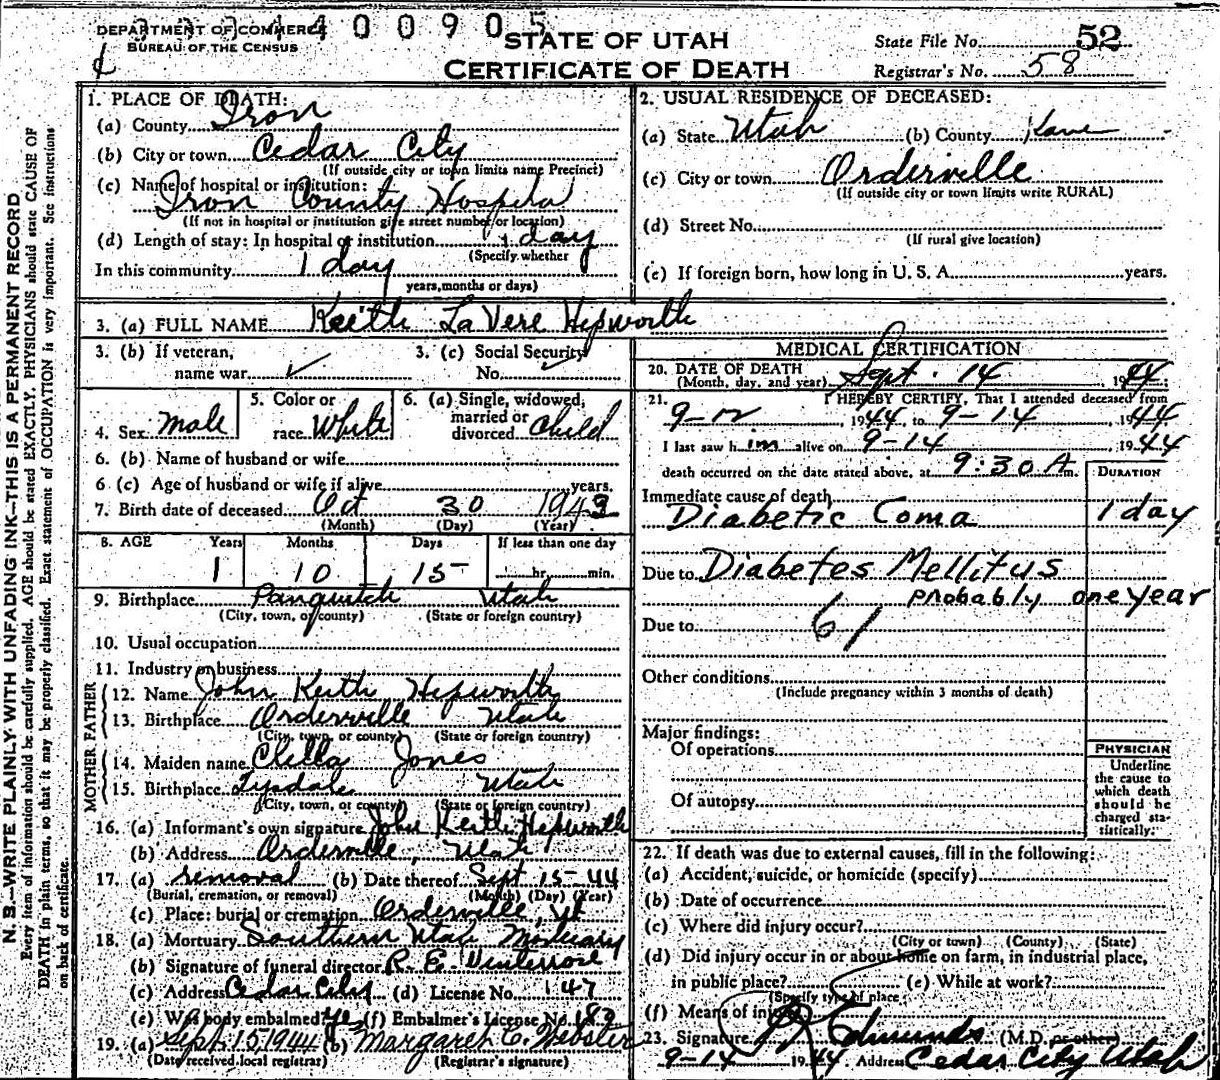 DEPARTMENT OF COMMERCE
BUREAU OF THE CENSUS
400905
STATE OF UTAH
CERTIFICATE OF DEATH
State File No. 52
Registrar's No. 58
N. B.—WRITE PLAINLY WITH UNFADING INK—THIS IS A PERMANENT RECORD
Every item of information should be carefully supplied. AGE should be stated EXACTLY. PHYSICIANS should state CAUSE OF
DEATH in plain terms, so that it may be properly classified. Exact statement of OCCUPATION is very important. See instructions
on back of certificate.
1. PLACE OF DEATH:
(a) County Iron
(b) City or town Cedar City
(If outside city or town limits name Precinct)
(c) Name of hospital or institution:
Iron County Hospital
(If not in hospital or institution give street number or location)
(d) Length of stay: In hospital or institution 1 day
(Specify whether
In this community 1 day
years, months or days)
2. USUAL RESIDENCE OF DECEASED:
(a) State Utah (b) County Kane
(c) City or town Orderville
(If outside city or town limits write RURAL)
(d) Street No.
(If rural give location)
(e) If foreign born, how long in U. S. A. years.
3. (a) FULL NAME Keith La Vere Hepworth
3. (b) If veteran,
name war
3. (c) Social Security
No.
4. Sex Male
5. Color or
race White
6. (a) Single, widowed,
married or
divorced Child
6. (b) Name of husband or wife
6 (c) Age of husband or wife if alive years.
7. Birth date of deceased Oct 30 194
(Month) (Day) (Year)
8. AGE Years Months Days If less than one day
1 10 15 hr. min.
9. Birthplace Panguitch Utah
(City, town, or county) (State or foreign country)
10. Usual occupation
11. Industry or business
FATHER
12. Name John Keith Hepworth
13. Birthplace Orderville Utah
(City, town, or county) (State or foreign country)
MOTHER
14. Maiden name Jones
15. Birthplace Utah
(City, town, or county) (State or foreign country)
16. (a) Informant's own signature John Keith Hepworth
(b) Address Orderville, Utah
17. (a) removal (b) Date thereof Sept 15-44
(Burial, cremation, or removal) (Month) (Day) (Year)
(c) Place: burial or cremation Orderville, Ut
18. (a) Mortuary Southern Utah Mortuary
(b) Signature of funeral director R. E.
(c) Address Cedar City (d) License No. 147
(e) Was body embalmed? yes (f) Embalmer's License No. 182
19. (a) Sept. 15, 1944 (b) Margaret C. Webster
(Date received local registrar) (Registrar's signature)
MEDICAL CERTIFICATION
20. DATE OF DEATH
(Month, day, and year) Sept. 14, 1944
21. I HEREBY CERTIFY, That I attended deceased from
9-12, 1944, to 9-14, 1944
I last saw him alive on 9-14 1944
death occurred on the date stated above, at 9:30 A m.
DURATION
Immediate cause of death
Diabetic Coma 1 day
Due to Diabetes Mellitus
probably one year
Due to 61
Other conditions
(Include pregnancy within 3 months of death)
Major findings:
Of operations
Of autopsy
PHYSICIAN
Underline
the cause to
which death
should be
charged sta-
tistically.
22. If death was due to external causes, fill in the following:
(a) Accident, suicide, or homicide (specify)
(b) Date of occurrence
(c) Where did injury occur?
(City or town) (County) (State)
(d) Did injury occur in or about home on farm, in industrial place,
in public place? (e) While at work?
(Specify type of place)
(f) Means of injury
23. Signature Edmunds (M.D. or other)
9-14 1944 Address Cedar City Utah